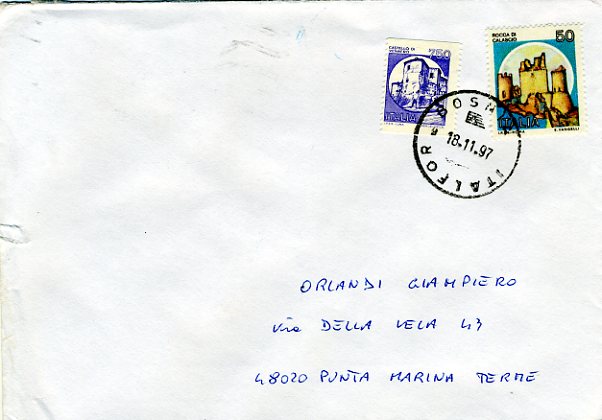 CASTELLO DI
750
ITALIA
ROCCA DI
CALASCIO
50
ITALIA
E. VANGELLI
ITALFOR BOSNIA
18.11.97
ORLANDI GIAMPIERO
Via DELLA VELA 43
48020 PUNTA MARINA TERME